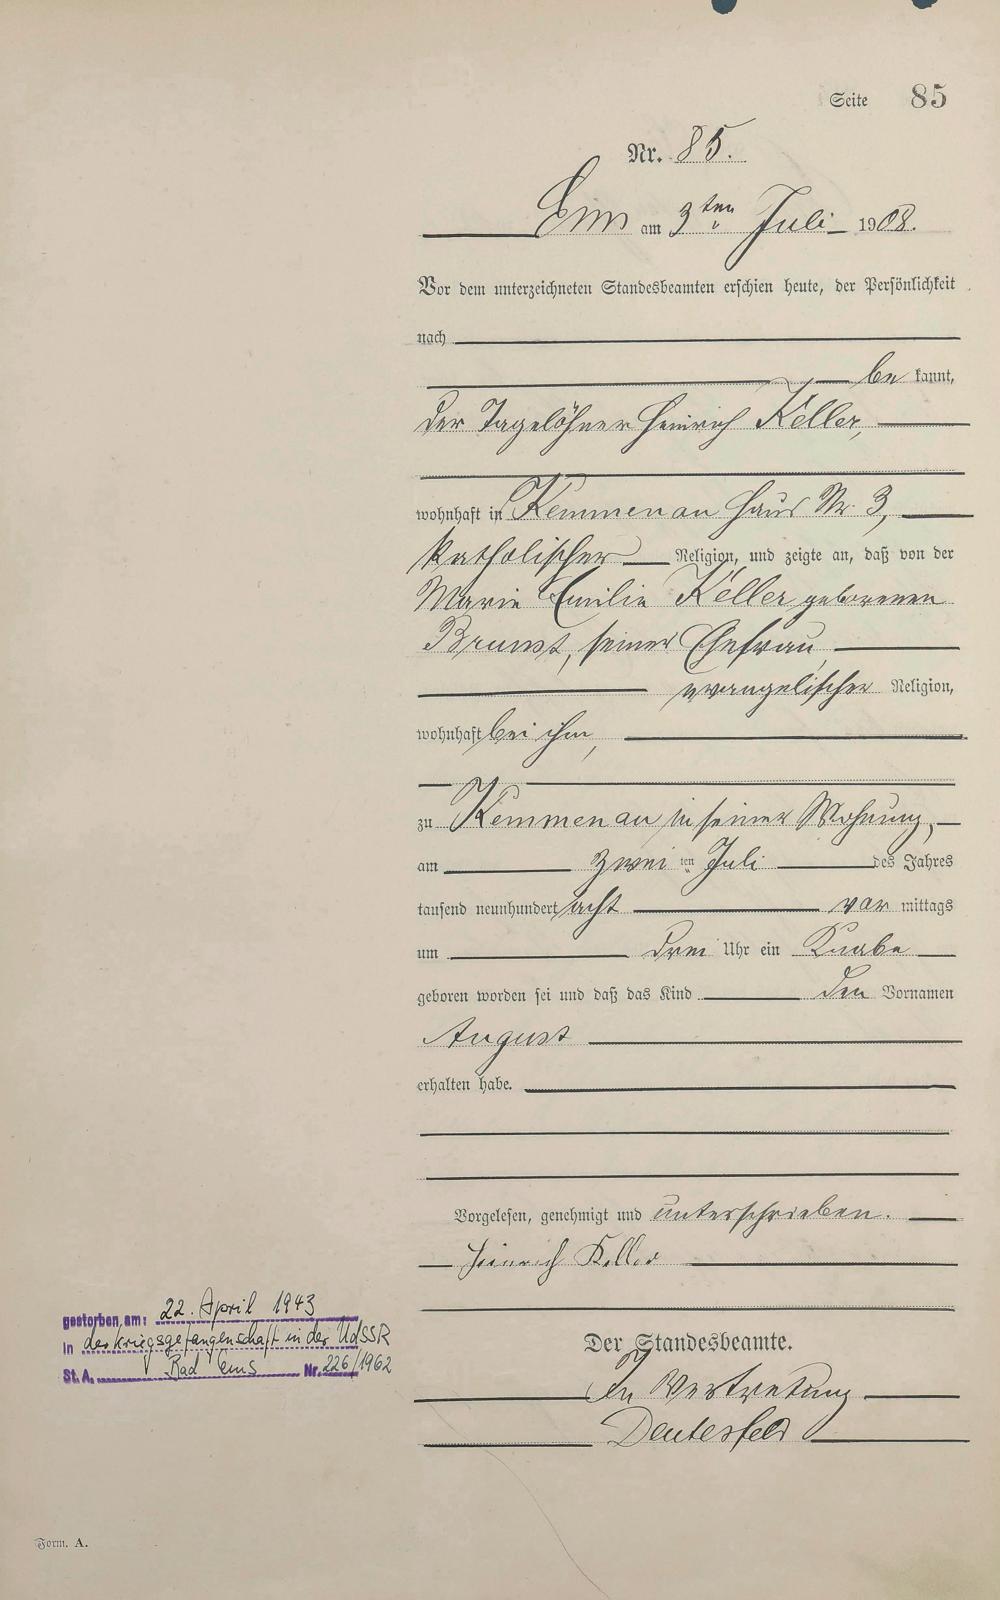 Seite 85
Nr. 85.
Ems am 3ten Juli 1908.
Vor dem unterzeichneten Standesbeamten erschien heute, der Persönlichkeit
nach
be kannt,
der Tagelöhner Heinrich Keller,
wohnhaft in Kemmenau Haus Nr. 3,
katholischer Religion, und zeigte an, daß von der
Marie Emilie Keller geborenen
seiner Ehefrau,
evangelischer Religion,
wohnhaft bei ihm,
zu Kemmenau in seiner Wohnung,
am zwei ten Juli des Jahres
tausend neunhundert acht vor mittags
um drei Uhr ein Knabe
geboren worden sei und daß das Kind den Vornamen
August
erhalten habe.
Vorgelesen, genehmigt und unterschrieben.
Heinrich Keller
Der Standesbeamte.
In Vertretung
Deutesfeld
gestorben am: 22. April 1943
in der Kriegsgefangenschaft in der UdSSR
St. A. Bad Ems Nr. 226/1962
Form. A.